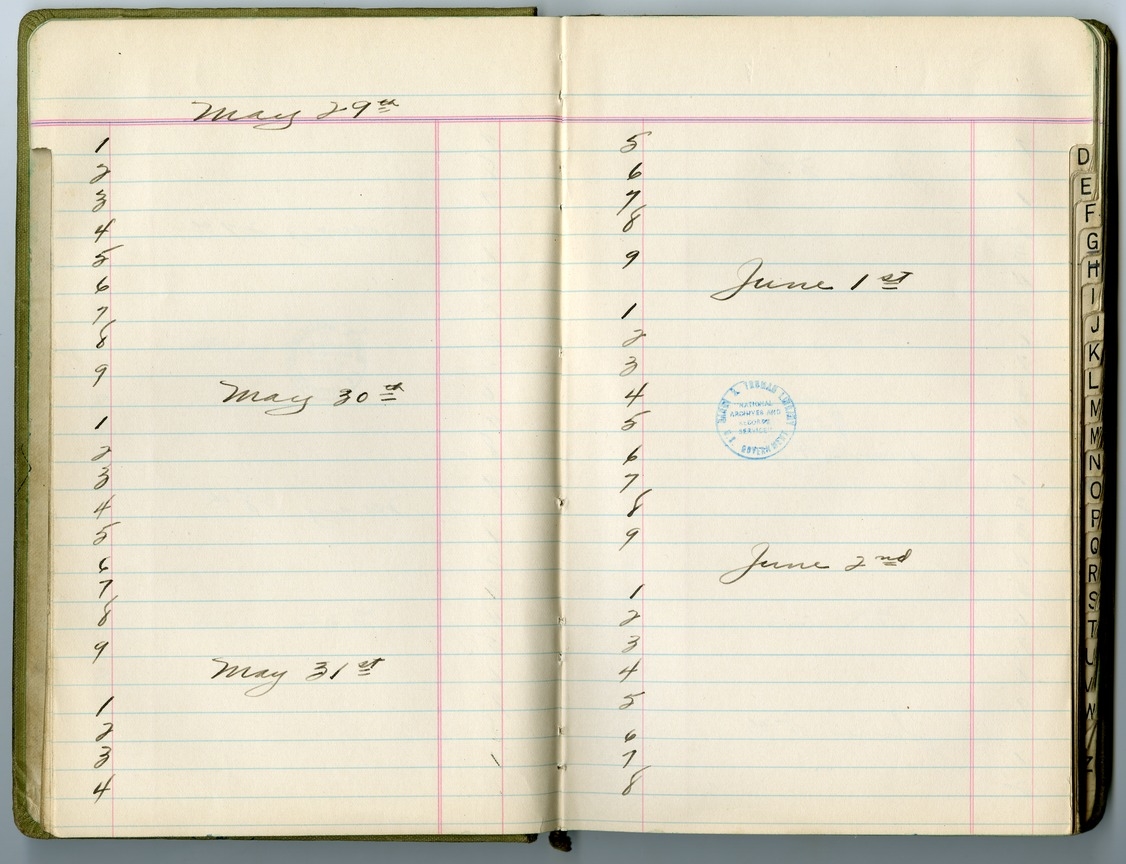 May 29th
1
2
3
4
5
6
7
8
9
May 30th
1
2
3
4
5
6
7
8
9
May 31st
1
2
3
4
5
6
7
8
9
June 1st
1
2
3
4
5
6
7
8
9
June 2nd
1
2
3
4
5
6
7
8
HARRY S. TRUMAN LIBRARY
NATIONAL
ARCHIVES AND
RECORDS
SERVICE
U.S. GOVERNMENT
D
E
F
G
H
I
J
K
L
M
M
N
O
P
Q
R
S
T
U
V
W
Z